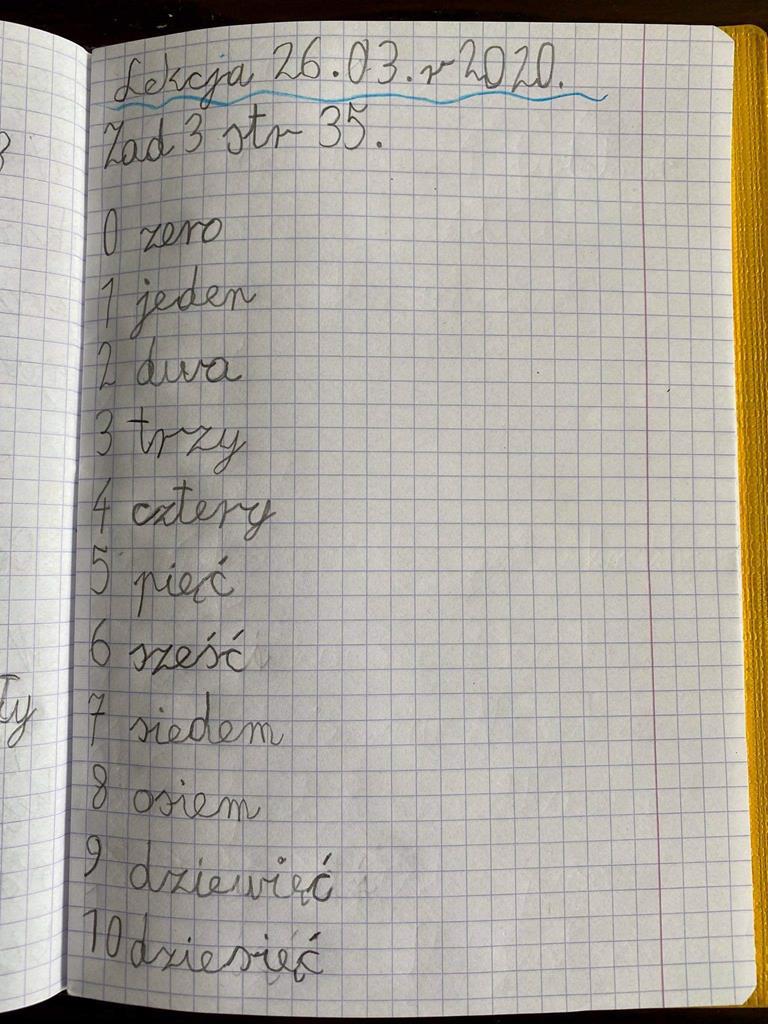 Lekcja 26.03.r 2020.
Zad 3 str 35.
0 zero
1 jeden
2 dwa
3 trzy
4 cztery
5 pięć
6 sześć
7 siedem
8 osiem
9 dziewięć
10 dziesięć